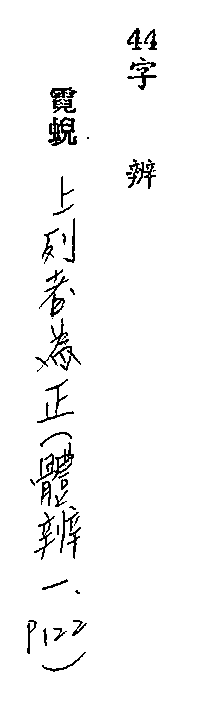 44字辨
霓蜺上列者為正(體辨一、P122)